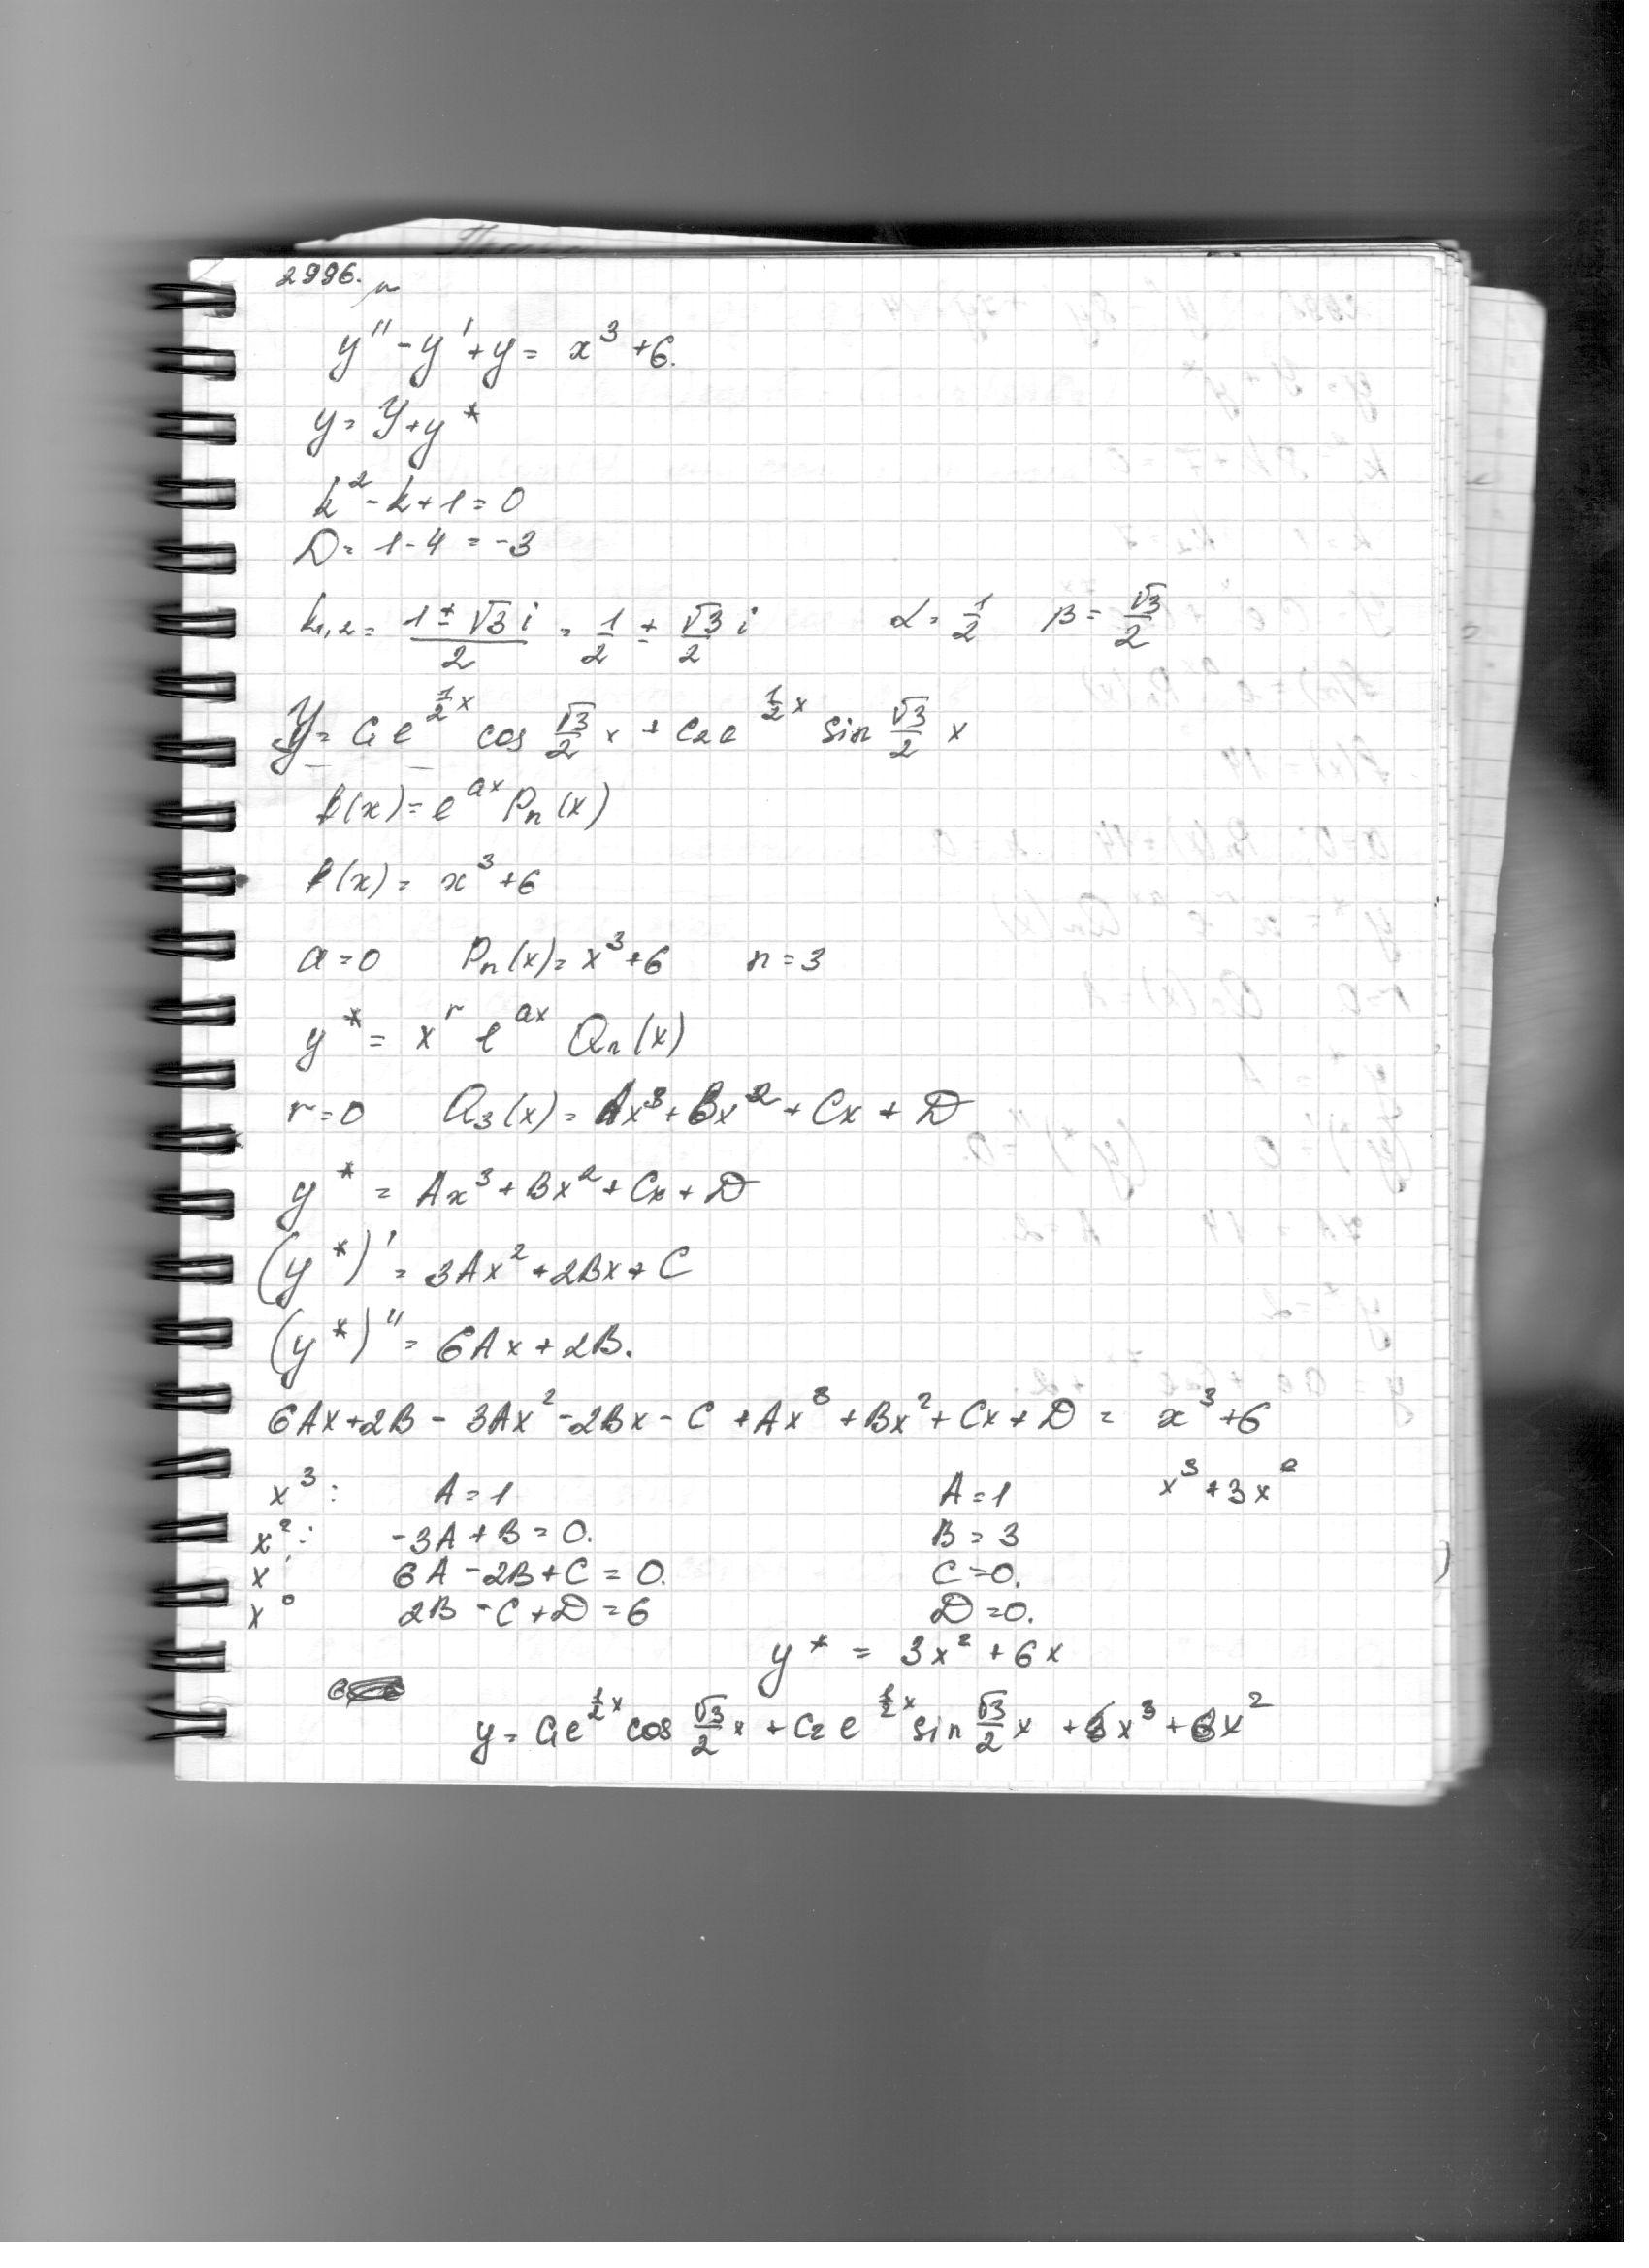 2996.
y'' - y' + y = x³ + 6.
y = Y + y*
k² - k + 1 = 0
D = 1 - 4 = -3
k₁,₂ = (1 ± √3 i)/2 = 1/2 ± √3/2 i α = 1/2 β = √3/2
Y = C₁e^(1/2 x) cos √3/2 x + C₂e^(1/2 x) sin √3/2 x
f(x) = e^(ax) Pₙ(x)
f(x) = x³ + 6
a = 0 Pₙ(x) = x³ + 6 n = 3
y* = x^r e^(ax) Qₙ(x)
r = 0 Q₃(x) = Ax³ + Bx² + Cx + D
y* = Ax³ + Bx² + Cx + D
(y*)' = 3Ax² + 2Bx + C
(y*)'' = 6Ax + 2B.
6Ax + 2B - 3Ax² - 2Bx - C + Ax³ + Bx² + Cx + D = x³ + 6
x³: A = 1 A = 1 x³ + 3x²
x²: -3A + B = 0. B = 3
x: 6A - 2B + C = 0. C = 0.
x⁰ 2B - C + D = 6 D = 0.
y* = 3x² + 6x
y = C₁e^(1/2 x) cos √3/2 x + C₂e^(1/2 x) sin √3/2 x + x³ + 3x²